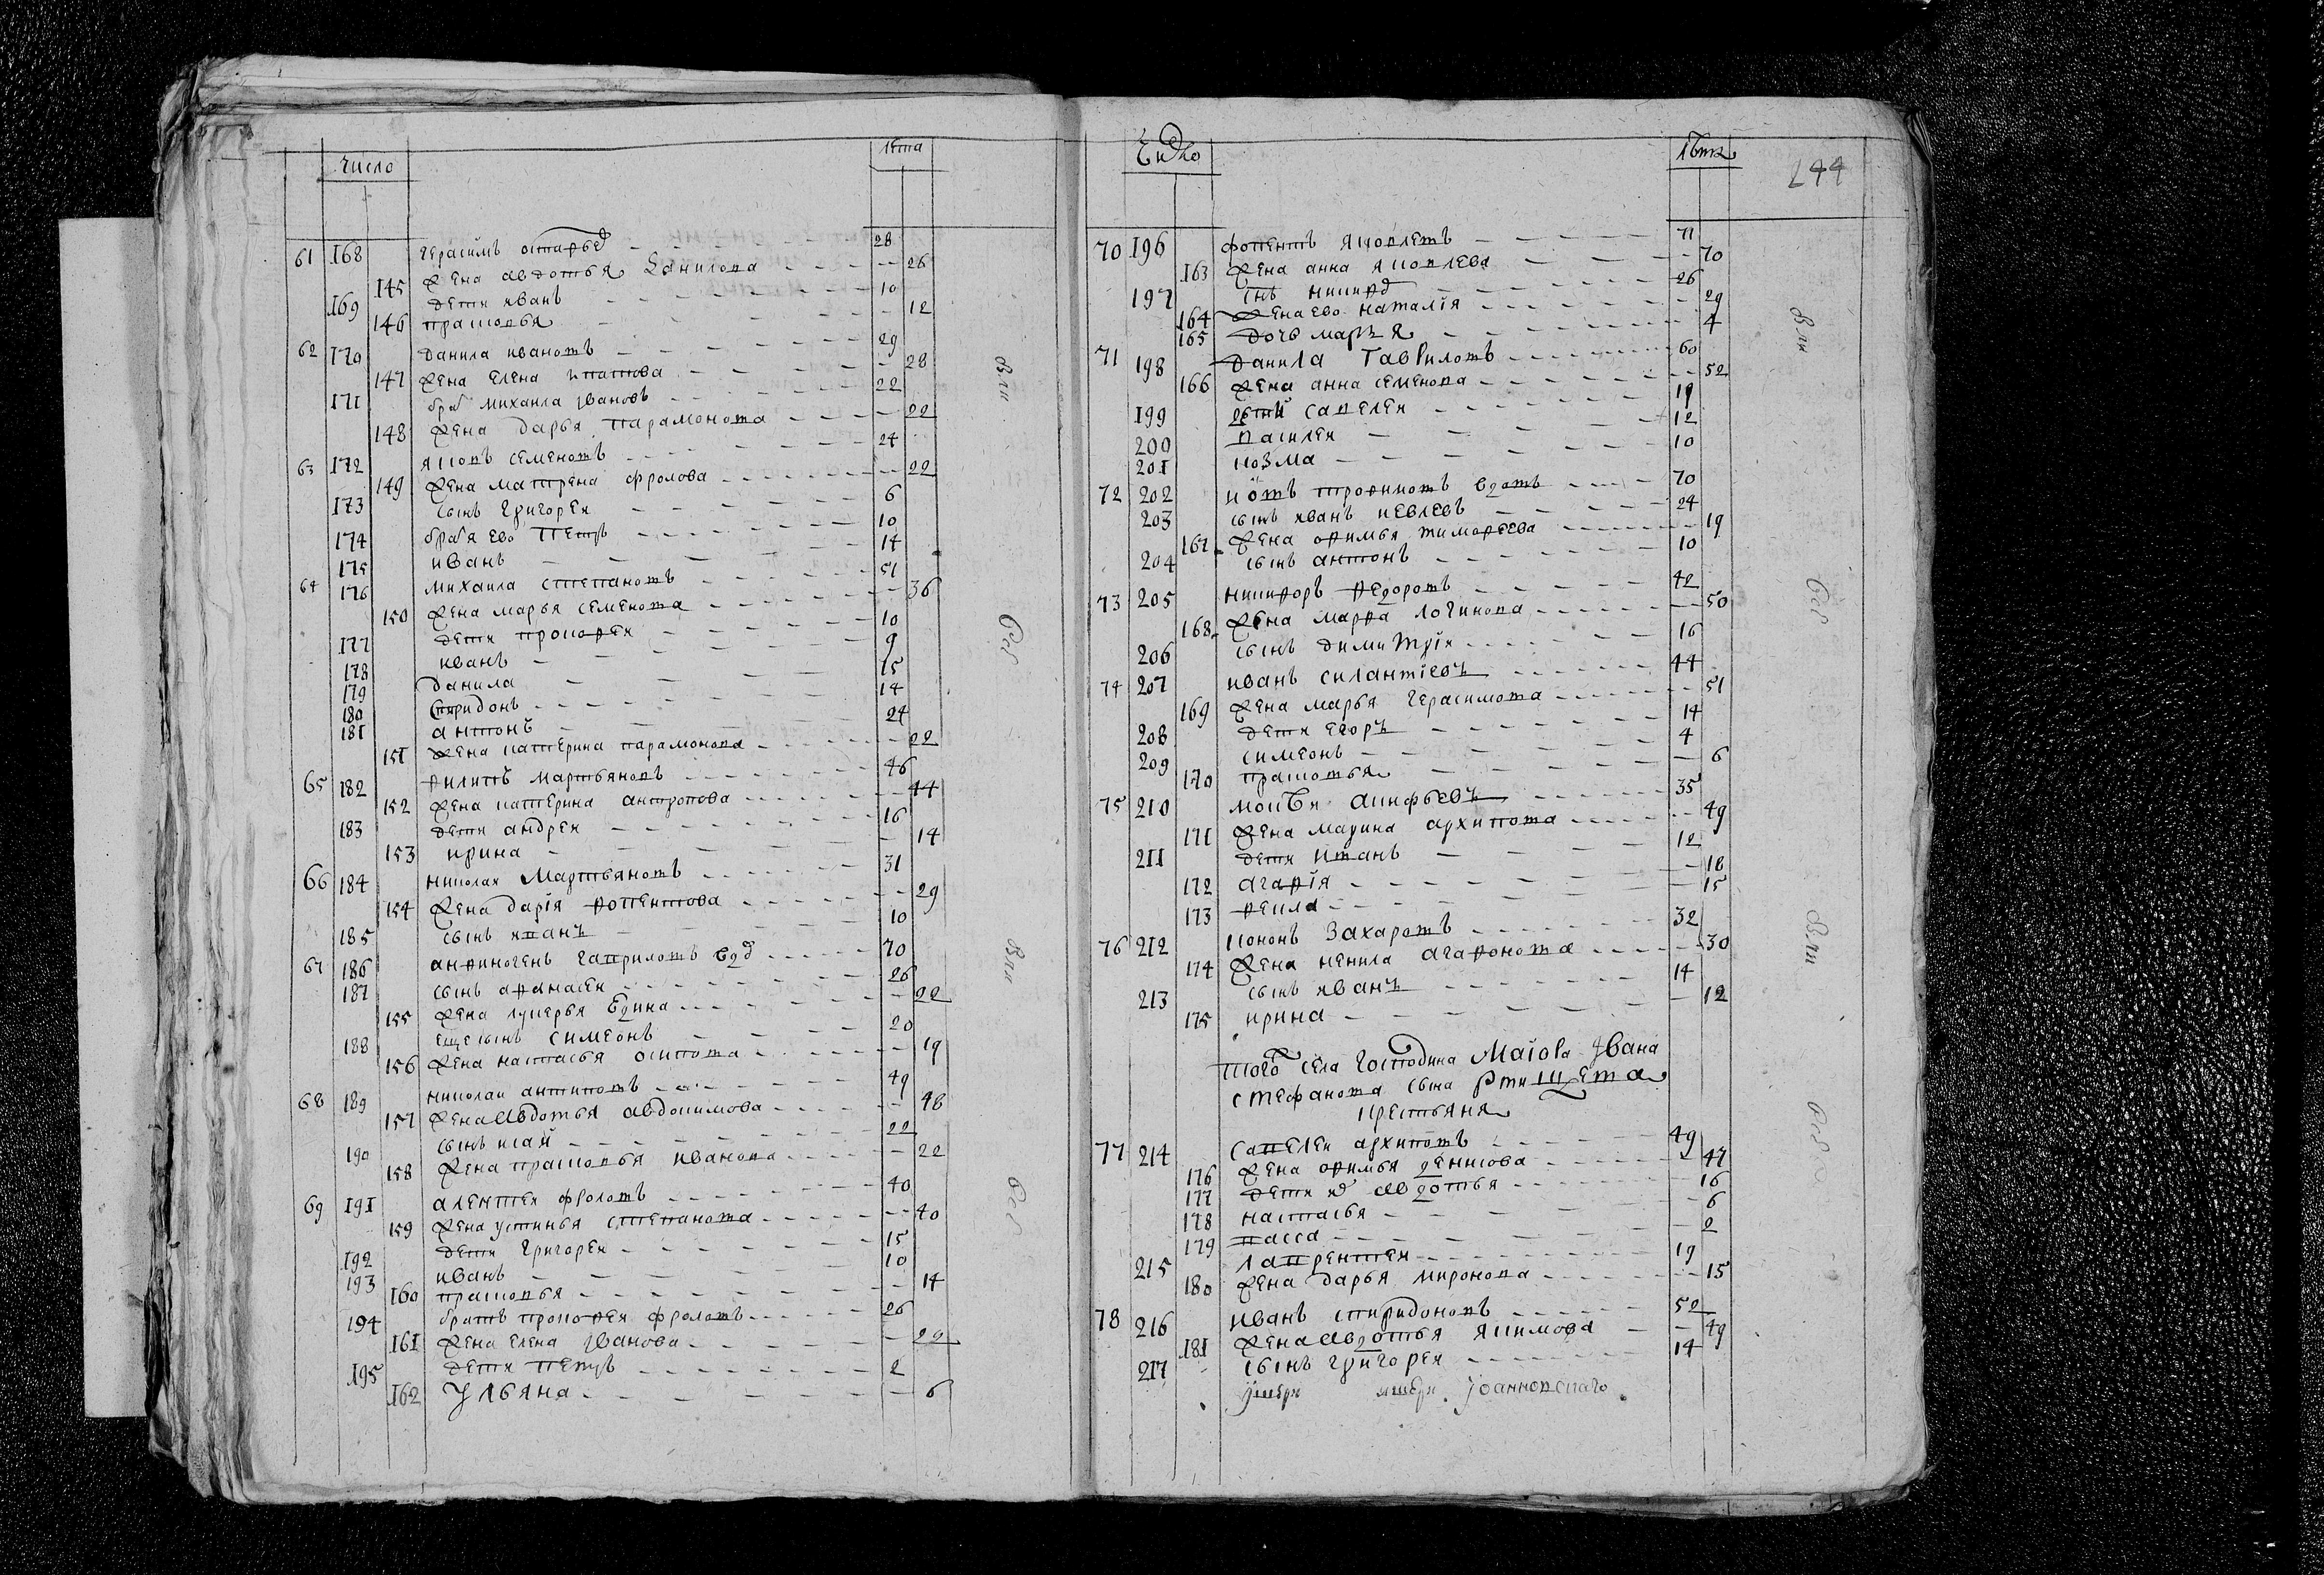 число лета
61 168 герасимъ остафьев 28
145 жена авдотья Данилова 26
169 дети иванъ 10
146 прасковья 12
62 170 данила ивановъ 29
147 жена елена 28
171 брат михаила Ивановъ 22
148 жена дарья парамонова 22
63 172 яковъ семеновъ 24
149 жена матрена фролова 22
173 сынъ григореи 6
174 братья ево петръ 10
175 иванъ 14
64 176 михаила степановъ 51
150 жена марья семенова 36
177 дети прокофеи 10
178 иванъ 9
179 данила 15
180 спиридонъ 14
181 антонъ 24
151 жена катерина парамонова 22
65 182 филипъ мартьяновъ 46
152 жена катерина антропова 44
183 дети андреи 16
153 ирина 14
66 184 николаи Мартьяновъ 31
154 жена дарія 29
185 сынъ иванъ 10
67 186 анфиногенъ гавриловъ вдв 70
187 сынъ афанасеи 26
155 жена лукерья 22
188 еще сынъ симеонъ 20
156 жена настасья осипова 19
68 189 николаи антиповъ 49
157 жена Авдотья авдокимова 48
190 сынъ исаи 22
158 жена прасковья иванова 22
69 191 алексеи фроловъ 40
159 жена устинья степанова 40
192 дети григореи 15
193 иванъ 10
160 прасковья 14
194 братъ прокофеи фроловъ 26
161 жена елена Иванова 29
195 дети петръ 2
162 Ульяна 6
число лета 244
70 196 яковлевъ 71
163 жена анна яковлева 70
197 снъ никиф 26
164 жена ево наталія 29
165 дочь марья 4
71 198 данила Гавриловъ 60
166 жена анна семенова 52
199 дети савелеи 19
200 василеи 12
201 козма 10
72 202 трофимовъ вдовъ 70
203 сынъ иванъ 24
167 жена афимья тимофеева 19
204 сынъ антонъ 10
73 205 никифоръ федоровъ 42
168 жена марфа логинова 50
206 сынъ димитріи 16
74 207 иванъ силантіевъ 44
169 жена марья герасимова 51
208 дети егоръ 14
209 симеонъ 4
170 прасковья 6
75 210 моисѣи 35
171 жена марина архипова 49
211 дети иванъ 12
172 агафія 18
173 фекла 15
76 212 кононъ Захаровъ 32
174 жена ненила агафонова 30
213 сынъ иванъ 14
175 ирина 12
того села господина Маіора Ивана
стефанова сына Ртищева
крестьяня
77 214 савелеи архиповъ 49
176 жена афимья денисова 47
177 дети авдотья 16
178 настасья 6
179 васса 2
215 лаврентеи 19
180 жена дарья миронова 15
78 216 иванъ спиридоновъ 52
181 жена авдотья якимова 49
217 сынъ григореи 14
Іоанновскаго